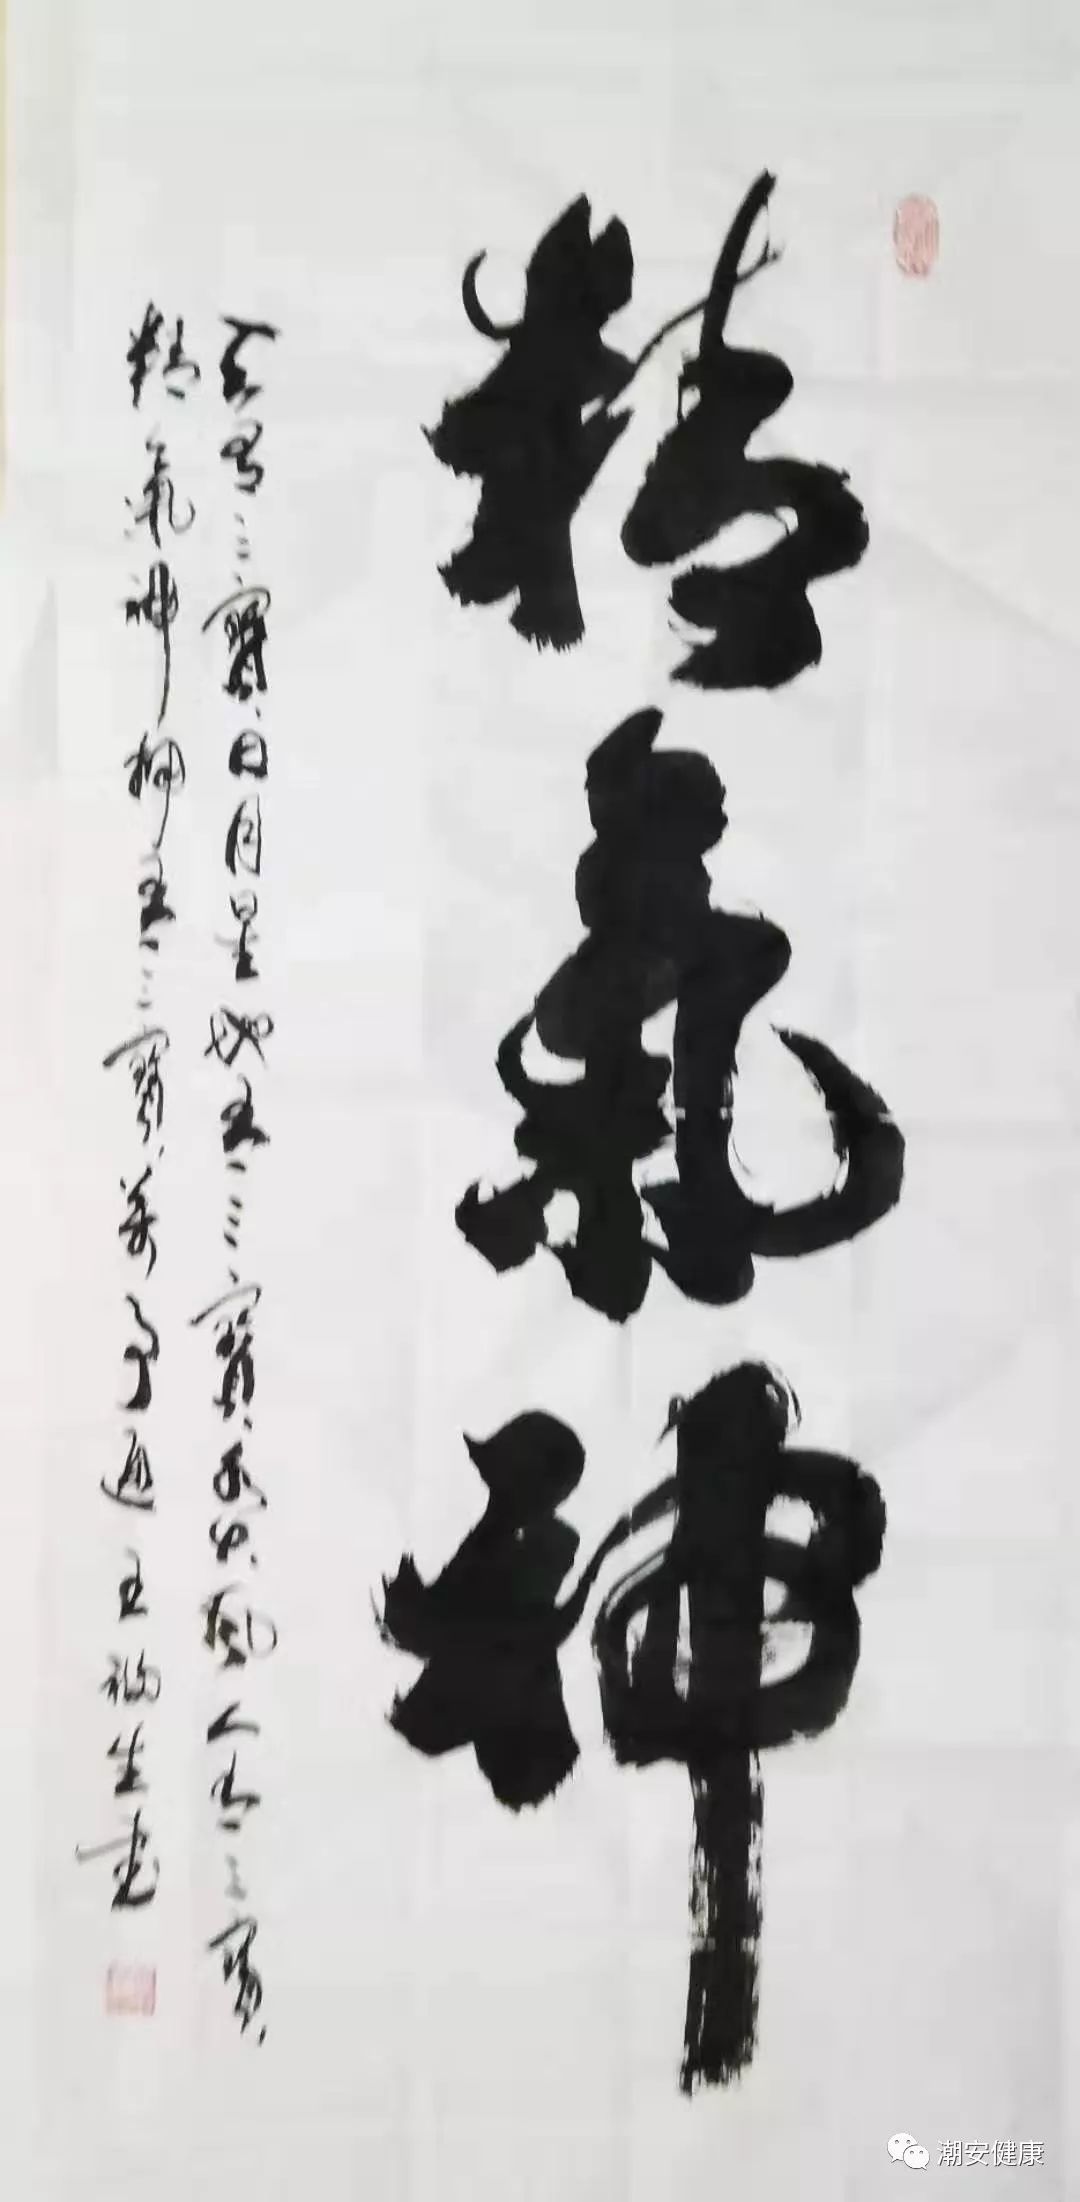 精氣神
天有三寶日月星地有三寶水火風人有三寶
精氣神拥有三寶萬事通王松生書
潮安健康